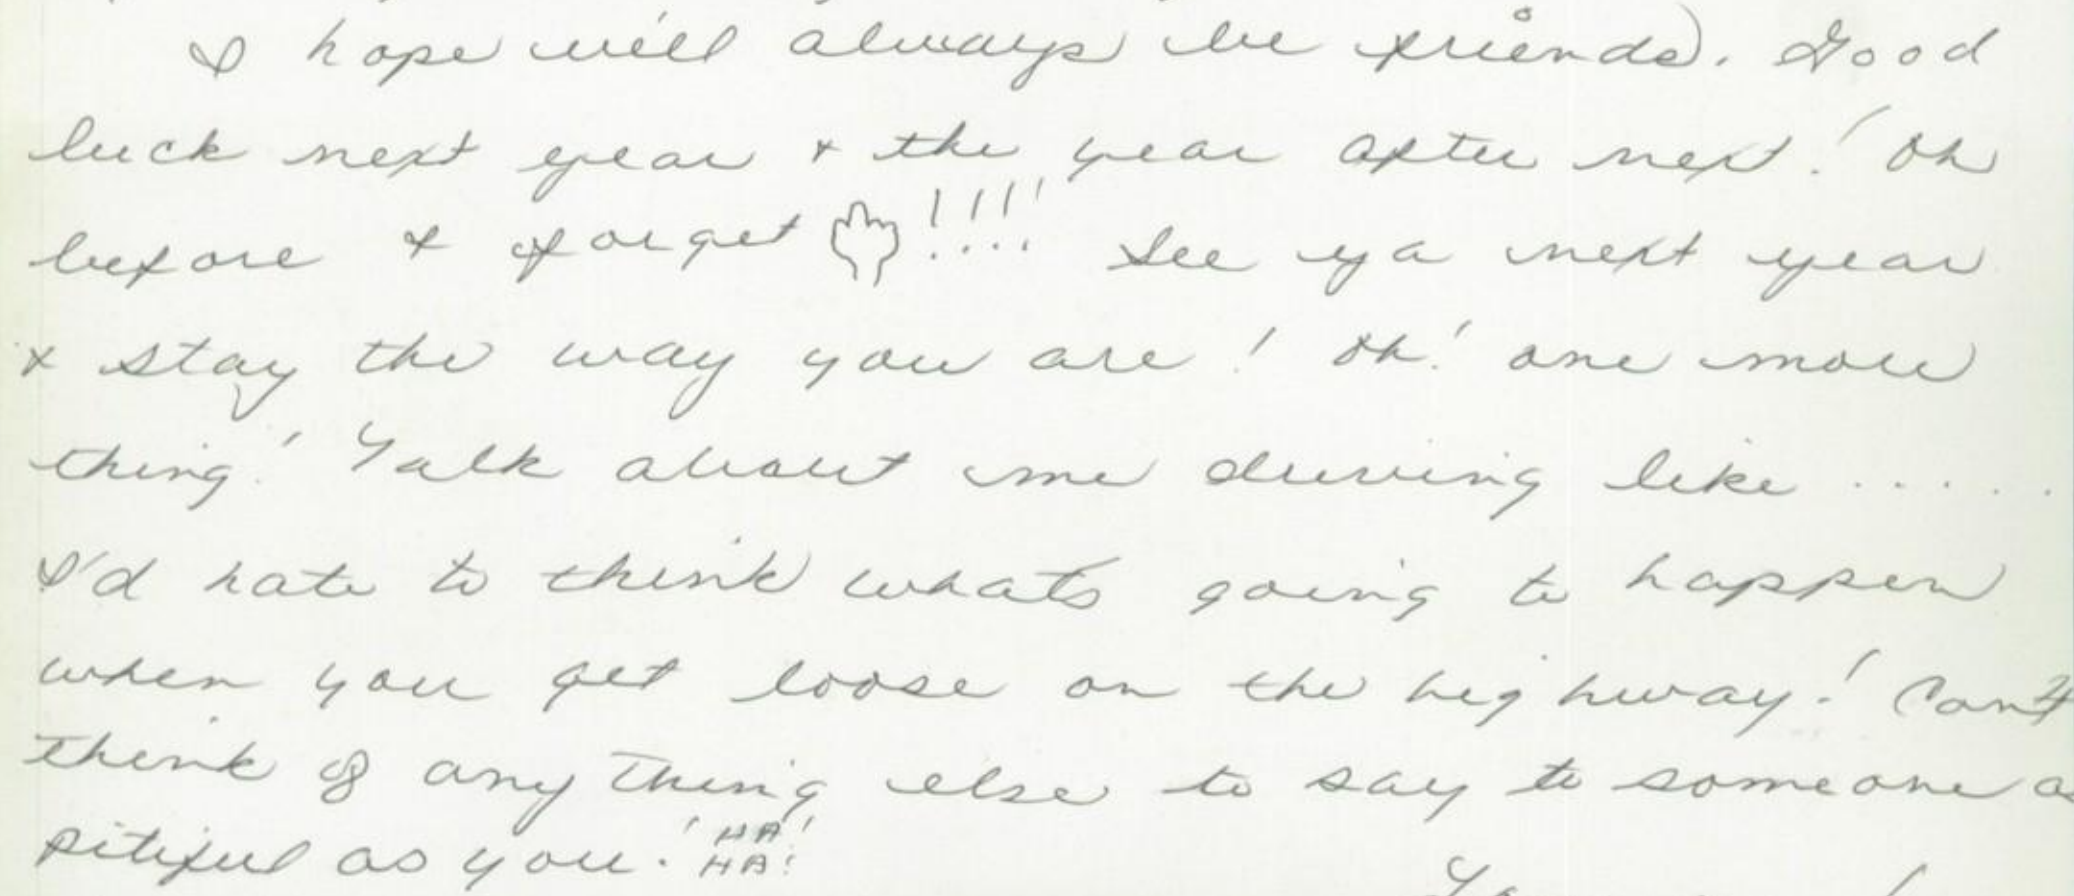 I hope we'll always be friends. Good
luck next year & the year after next! Oh
before I forget !!!!! See ya next year
& stay the way you are! Oh! one more
thing! Talk about me driving like .....
I'd hate to think whats going to happen
when you get loose on the highway! Can't
think of anything else to say to someone as
pitiful as you! HA!
HA!